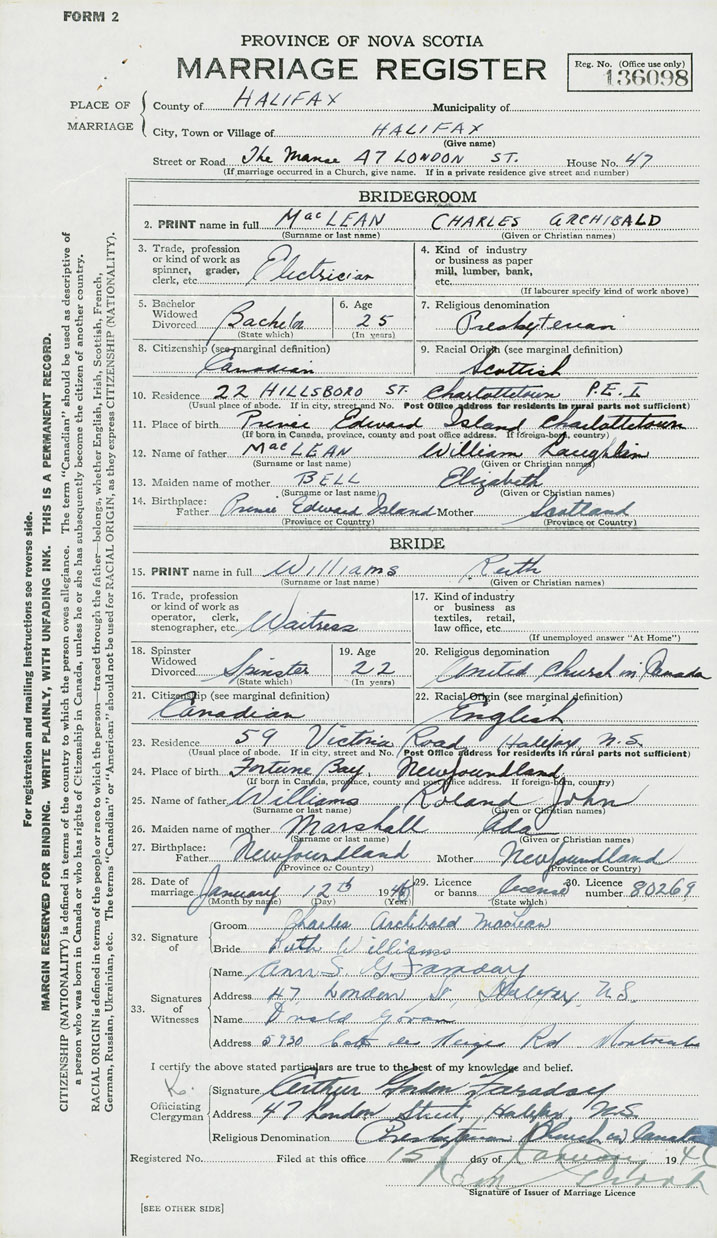 FORM 2
PROVINCE OF NOVA SCOTIA
MARRIAGE REGISTER
Reg. No. (Office use only)
136098
PLACE OF MARRIAGE
County of HALIFAX Municipality of
City, Town or Village of HALIFAX
(Give name)
Street or Road The Manse 47 LONDON ST. House No. 47
(If marriage occurred in a Church, give name. If in a private residence give street and number)
BRIDEGROOM
2. PRINT name in full MacLEAN CHARLES ARCHIBALD
(Surname or last name) (Given or Christian names)
3. Trade, profession or kind of work as spinner, grader, clerk, etc. Electrician
4. Kind of industry or business as paper mill, lumber, bank, etc.
(If labourer specify kind of work above)
5. Bachelor Widowed Divorced Bachelor
(State which)
6. Age 25
(In years)
7. Religious denomination
Presbyterian
8. Citizenship (see marginal definition)
Canadian
9. Racial Origin (see marginal definition)
Scottish
10. Residence 22 HILLSBORO ST. Charlottetown P.E.I
(Usual place of abode. If in city, street and No. Post Office address for residents in rural parts not sufficient)
11. Place of birth Prince Edward Island Charlottetown
(If born in Canada, province, county and post office address. If foreign-born, country)
12. Name of father MacLEAN William Laughlin
(Surname or last name) (Given or Christian names)
13. Maiden name of mother BELL Elizabeth
(Surname or last name) (Given or Christian names)
14. Birthplace: Father Prince Edward Island Mother Scotland
(Province or Country) (Province or Country)
BRIDE
15. PRINT name in full Williams Ruth
(Surname or last name) (Given or Christian names)
16. Trade, profession or kind of work as operator, clerk, stenographer, etc. Waitress
17. Kind of industry or business as textiles, retail, law office, etc.
(If unemployed answer "At Home")
18. Spinster Widowed Divorced Spinster
(State which)
19. Age 22
(In years)
20. Religious denomination
United Church in Canada
21. Citizenship (see marginal definition)
Canadian
22. Racial Origin (see marginal definition)
English
23. Residence 59 Victoria Road, Halifax, N.S.
(Usual place of abode. If in city, street and No. Post Office address for residents in rural parts not sufficient)
24. Place of birth Fortune Bay, Newfoundland
(If born in Canada, province, county and post office address. If foreign-born, country)
25. Name of father Williams Roland John
(Surname or last name) (Given or Christian names)
26. Maiden name of mother Marshall Ada
(Surname or last name) (Given or Christian names)
27. Birthplace: Father Newfoundland Mother Newfoundland
(Province or Country) (Province or Country)
28. Date of marriage January 12th 19
(Month by name) (Day) (Year)
29. Licence or banns license
(State which)
30. Licence number 80269
32. Signature of
Groom Charles Archibald MacLean
Bride Ruth Williams
33. Signatures of Witnesses
Name Faraday
Address 47 London St, Halifax, N.S.
Name Donald
Address 5930 Cote des Neiges Rd Montreal
I certify the above stated particulars are true to the best of my knowledge and belief.
Officiating Clergyman
Signature Arthur Gordon Faraday
Address 47 London Street, Halifax, N.S.
Religious Denomination Presbyterian Church in Canada
Registered No. Filed at this office 15 day of January 194
Signature of Issuer of Marriage Licence
[SEE OTHER SIDE]
For registration and mailing instructions see reverse side.
MARGIN RESERVED FOR BINDING. WRITE PLAINLY, WITH UNFADING INK. THIS IS A PERMANENT RECORD.
CITIZENSHIP (NATIONALITY) is defined in terms of the country to which the person owes allegiance. The term "Canadian" should be used as descriptive of
a person who was born in Canada or who has rights of Citizenship in Canada, unless he or she has subsequently become the citizen of another country.
RACIAL ORIGIN is defined in terms of the people or race to which the person—traced through the father—belongs, whether English, Irish, Scottish, French,
German, Russian, Ukrainian, etc. The terms "Canadian" or "American" should not be used for RACIAL ORIGIN, as they express CITIZENSHIP (NATIONALITY).